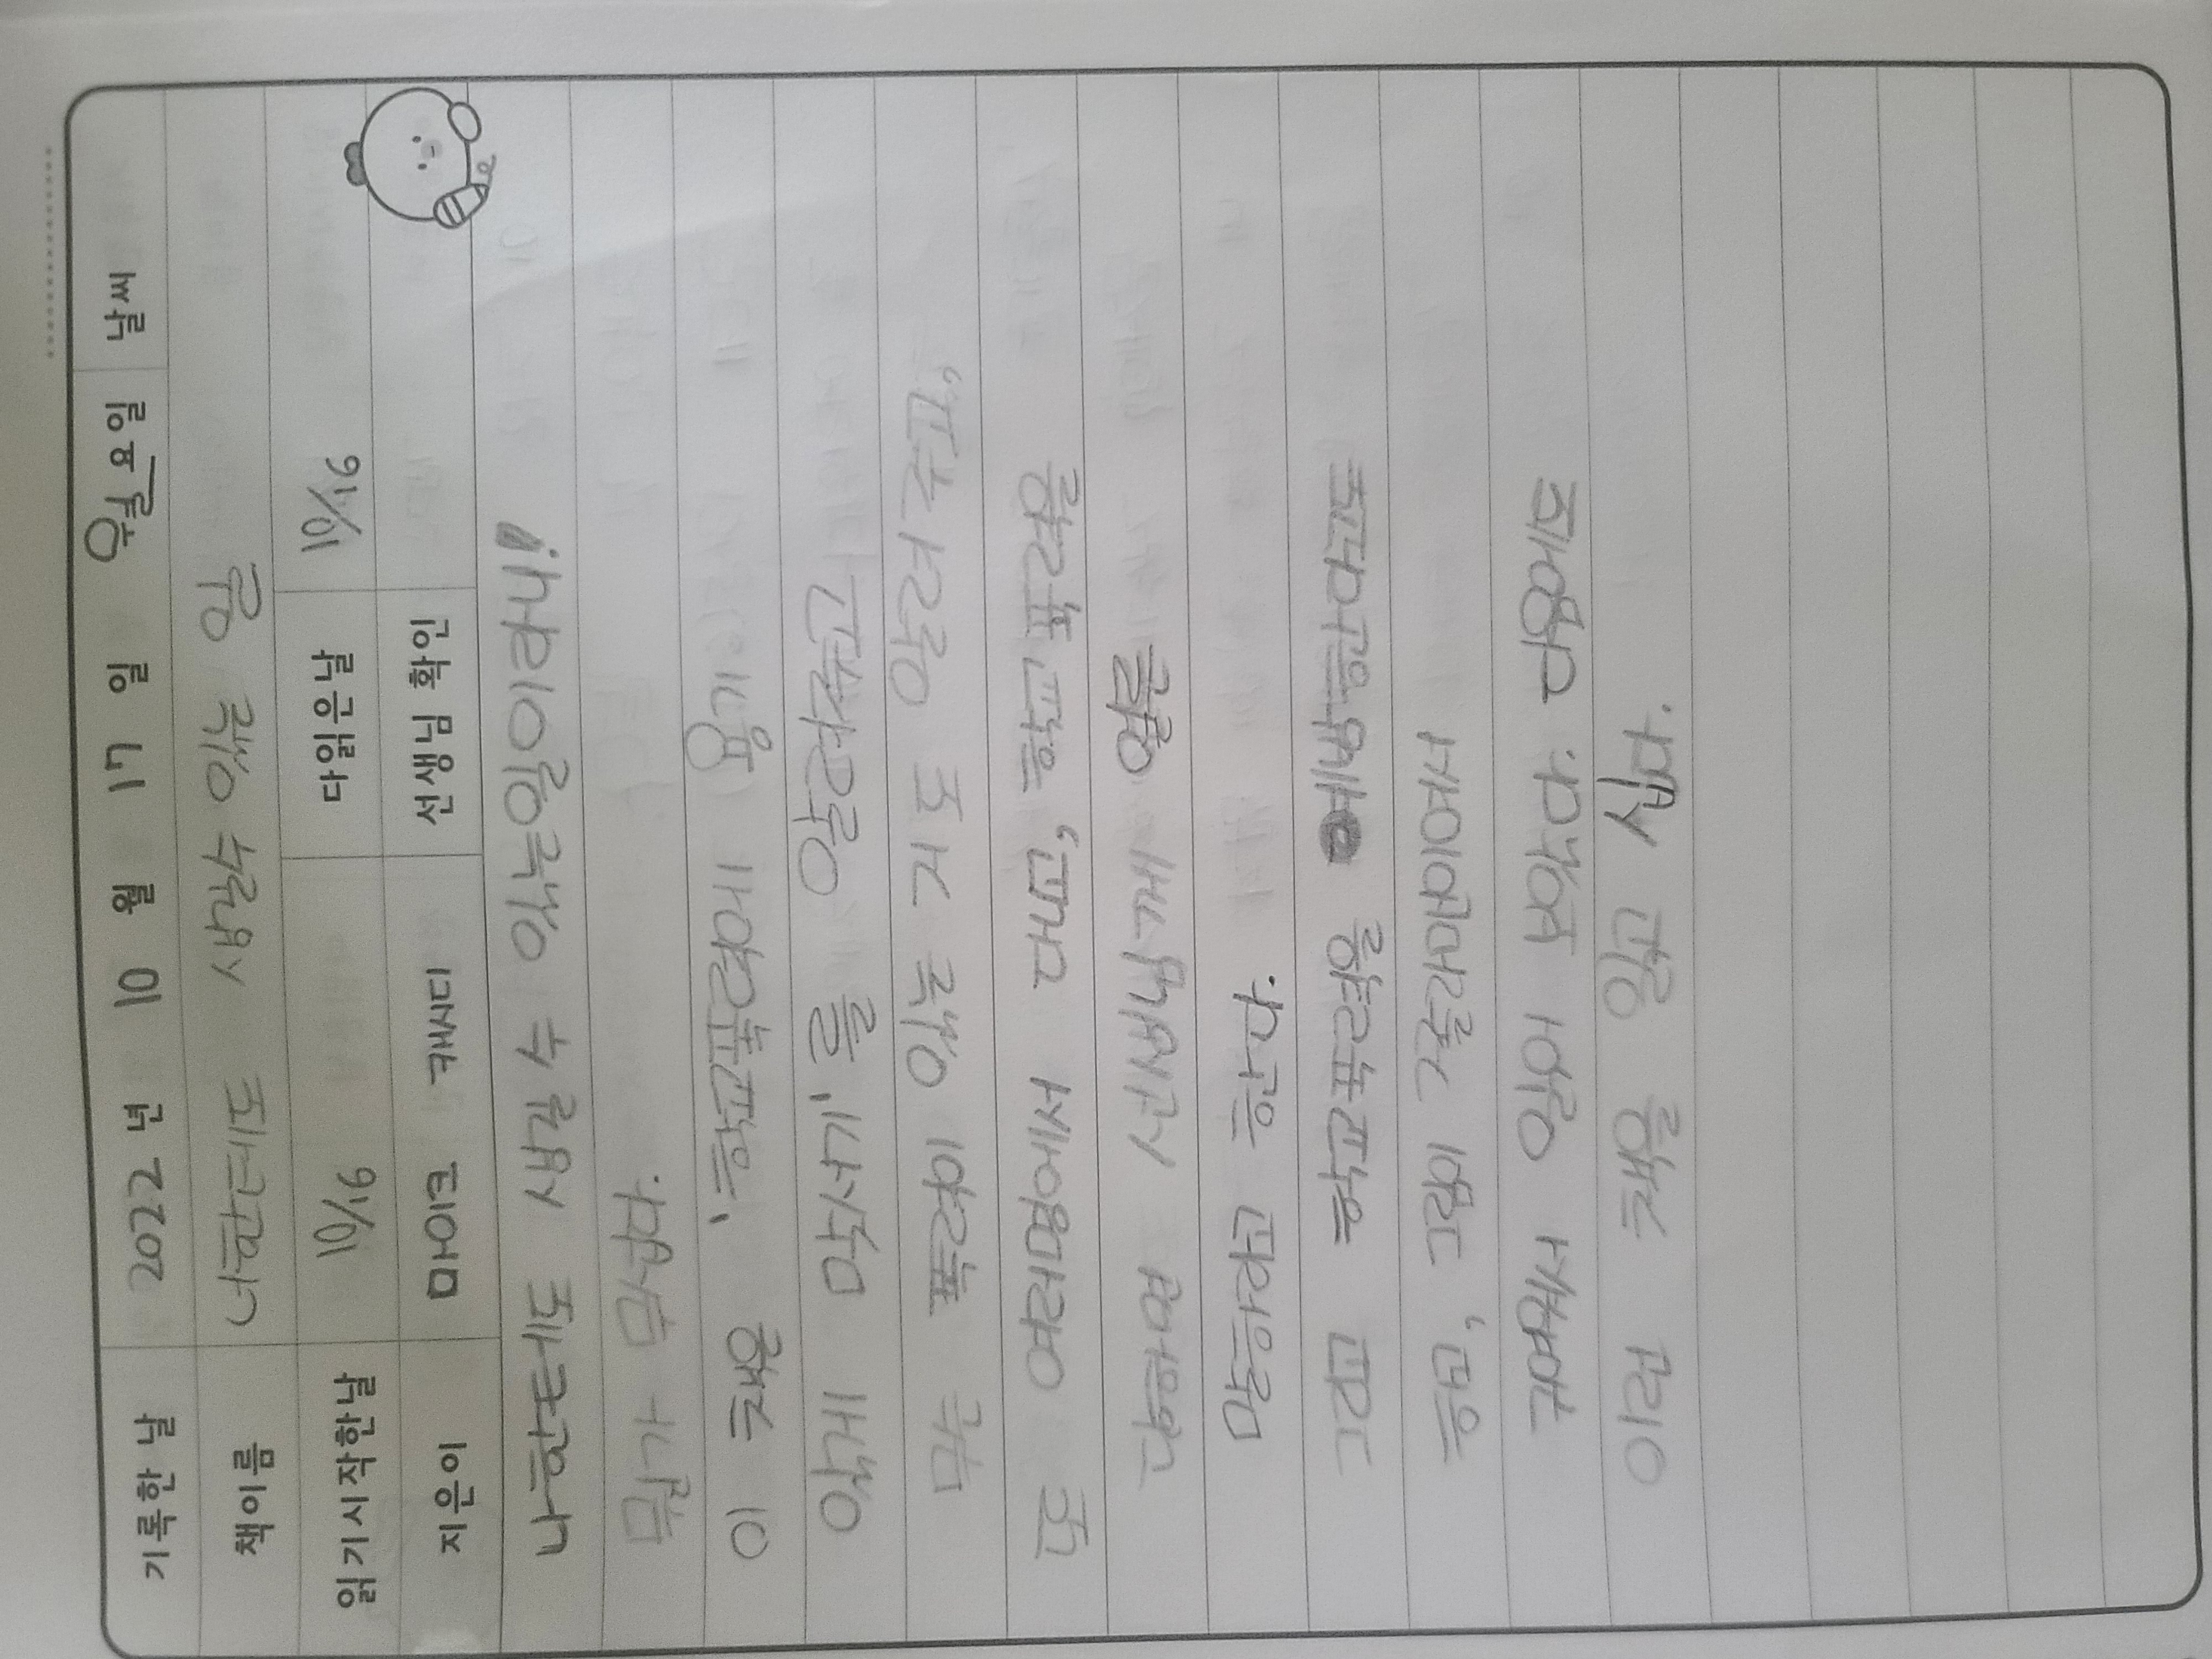 기록한 날 2022 년 10 월 17 일 월요일 날씨
책이름 너한테도 생길수 있는 일
읽기시작한날 10/16 다읽은날 10/16
지은이 마이크 캐시디 선생님 확인
나한테도 생길 수 있는일이라니!
뭔가 무섭다.
이 책은 '학교폭력에 용기
있게 맞서기'를 알려주고
무슨 폭력이 있는 지도 알려주고,
또 여러명에서 다니고, 학교폭력을
당하면 선생님께 얼른
말하라고 한다.
그리고 학교폭력을 예방한다고도
하고, 그림이 졸라맨이여서
귀여워서 읽어 보았다. 다음에도
이런 책을 읽고 십다.